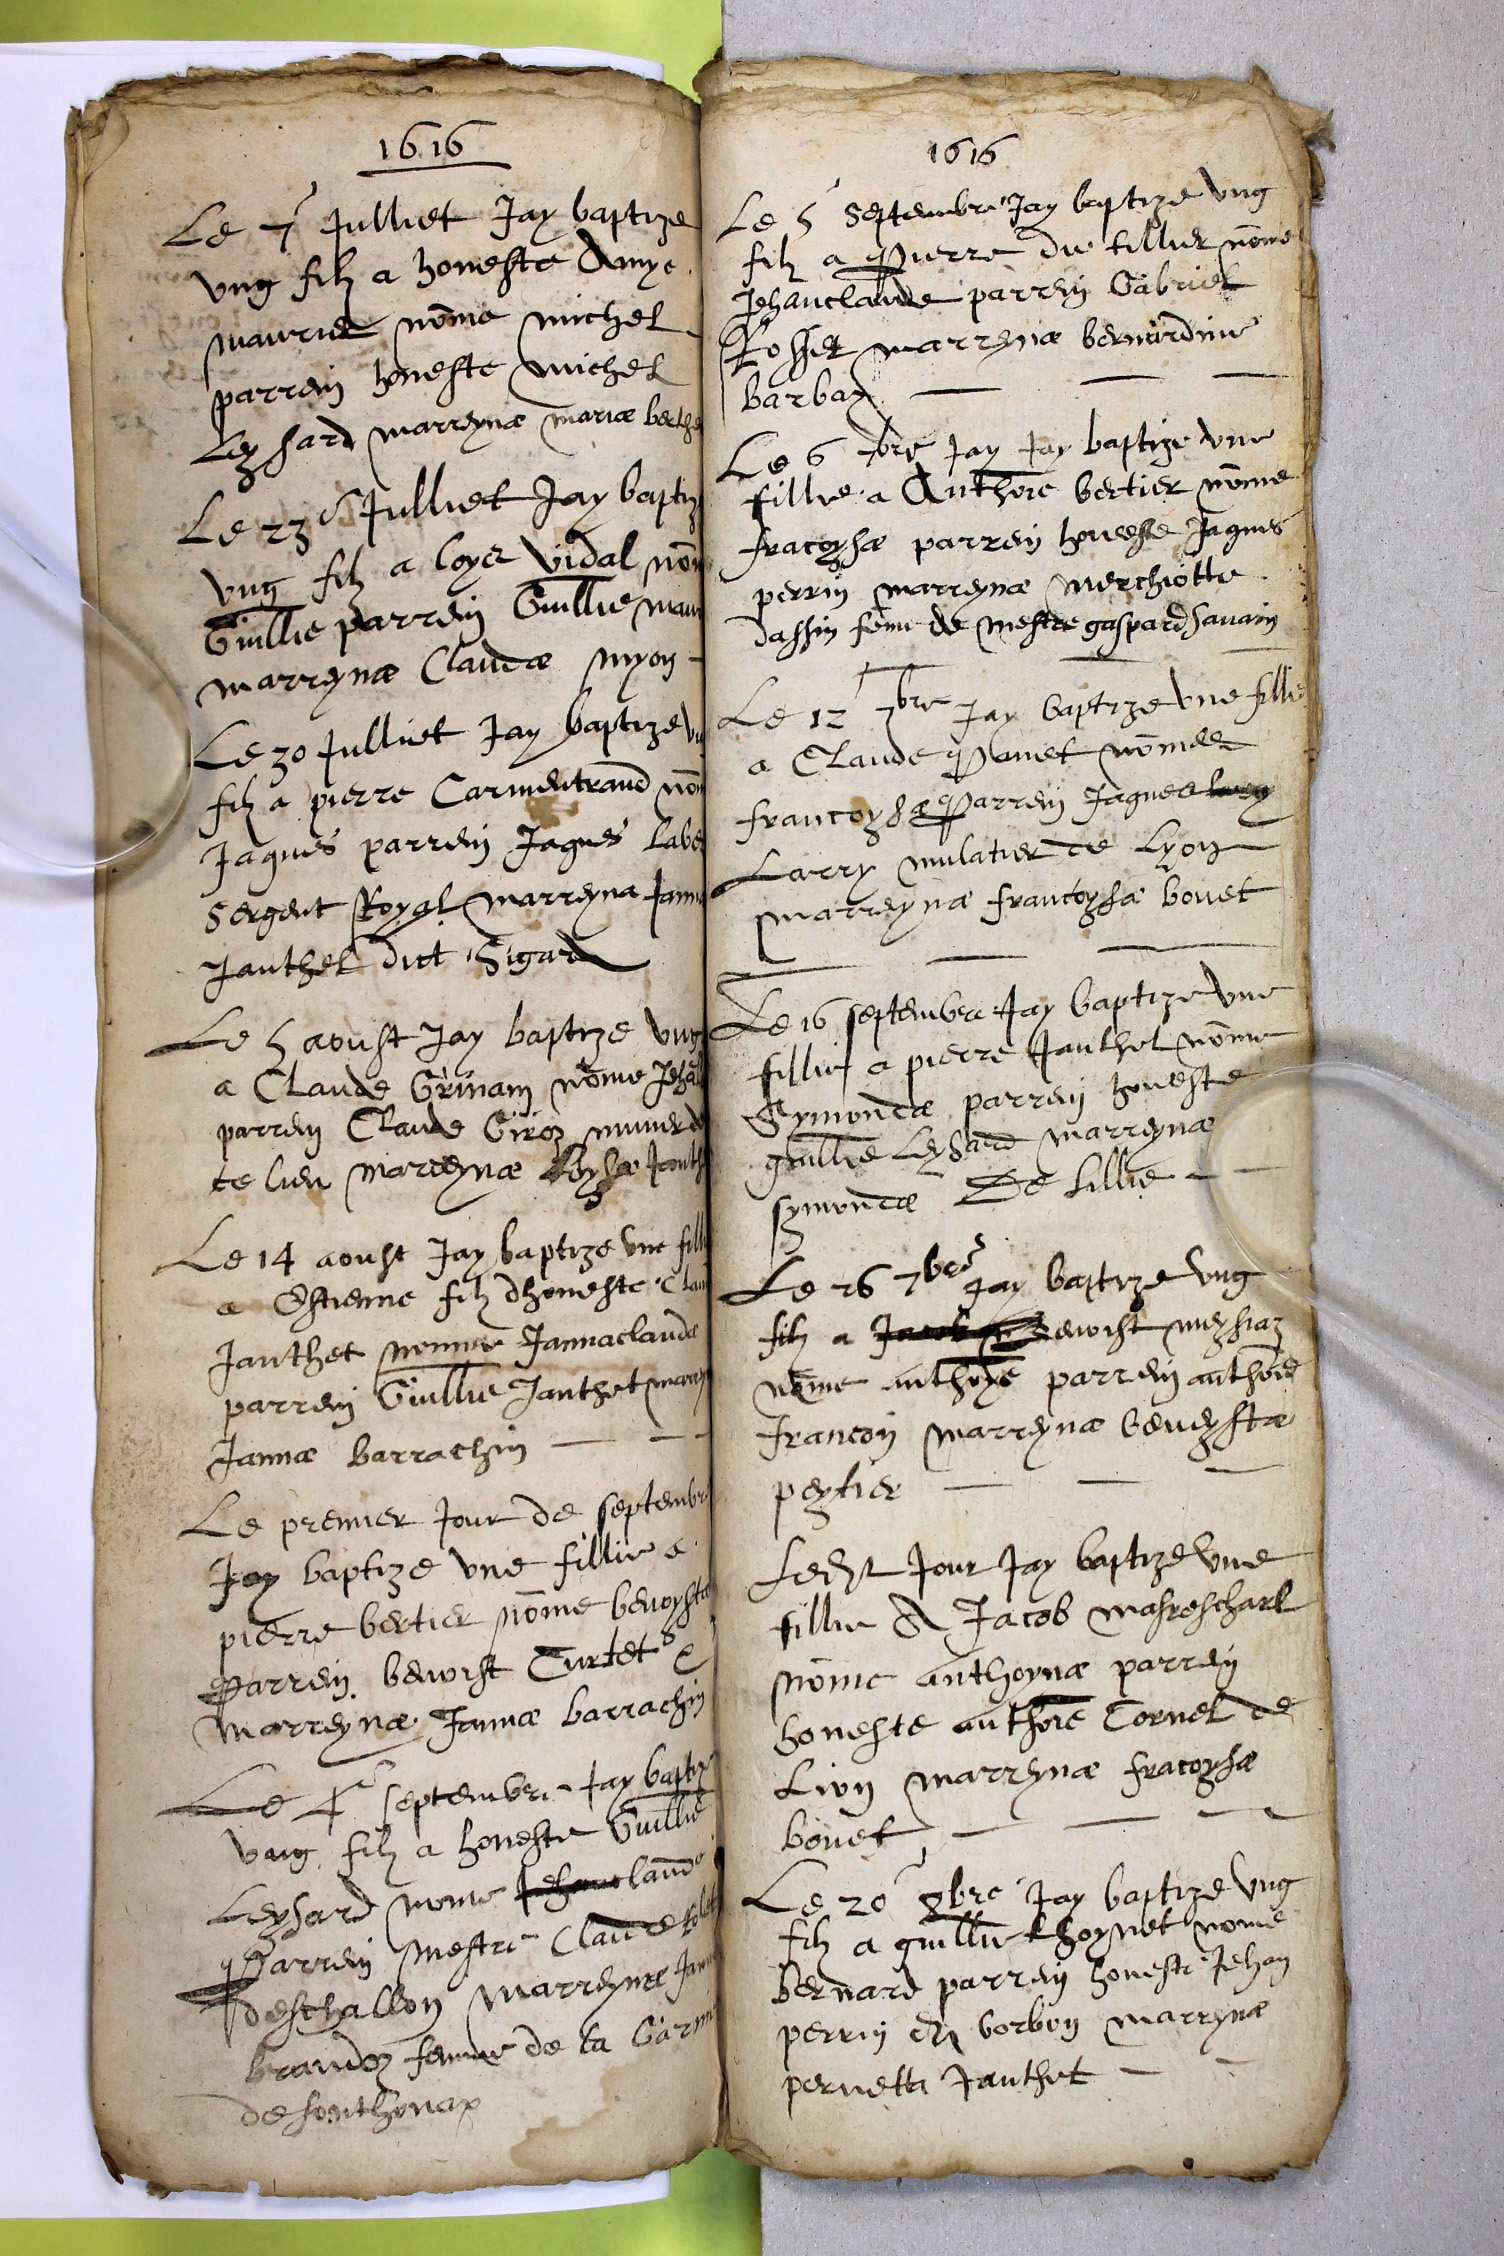 1616
Le 7 Julliet Jay baptize
ung filz a honeste Amye
maurier nōme michel
parrein honeste michel
Leyssard marreynæ mariæ berthe
Le 23 Julliet Jay baptiz
ung filz a loys vidal nōm
Guillie parrein Guillie maur
marreynæ Claudæ myon
Le 30 Julliet Jay baptize
filz a pierre Carmentrand nōm
Jaques parrein Jaques labe
Sergent Royal marreyna Jann
Janthel dict Sigard
Le 5 aoust Jay baptize ung
a Claude Grinam nōme Jeha
parrein Claude Giroz munier de
ce lieu marreynæ Loysæ Janth
Le 14 aoust Jay baptize une filli
a Estienne filz dhoneste Clau
Janthet nomme Jannaclaudæ
parrein Guillie Janthet marrey
Jannæ barrachin
Le premier Jour de septembr
Jay baptize une fillie a
pierre bertier nōme benoysta
Parrein benoist Turtet
marreynæ Jannæ barrachin
Le 4 septembre Jay baptiz
ung filz a honeste Guillie
Leyssard nome Jehan claude
Parrein mestre Claude
deschallon marreynæ Jann
brandoz femme de la
de sonthonax
1616
Le 5 Septembre Jay baptize ung
filz a Pierre du tillier nōme
Jehanclaude parrein Gabriel
Rosset marreynæ bernardine
barbax
Le 6 7bre Jay Jay baptize une
fillie a Anthoīe bertier nōme
fracoysæ parrein honeste Jaques
perrin marreynæ merchiotte
dassin feme de mestre gaspard savarin
Le 12 7bre Jay baptize une fillie
a Claude Panet nōmee
francoysæ Parrein Jaques
Larry mulatier de Lyon
marreynæ francoysæ bonet
Le 16 septembre Jay baptize une
fillie a pierre Janthel nōme
Symondæ parrein honeste
guillie Leyssard marreynæ
symondæ De lillie
Le 26 7bre Jay baptize ung
filz a benoist meysiaz
nōme anthoyē parrein anthoīe
francon marreynæ benoystæ
peytier
Le dit Jour Jay baptize une
fillie A Jacob mareschaxl
nōme anthoynæ parrein
honeste anthoīe Cornel de
Lion marreynæ fracoysæ
bonet
Le 20 8bre Jay baptize ung
filz a guillie thoynet nome
bernard parrein honeste Jehan
perrin dit borbon marreynæ
pernetta Janthet